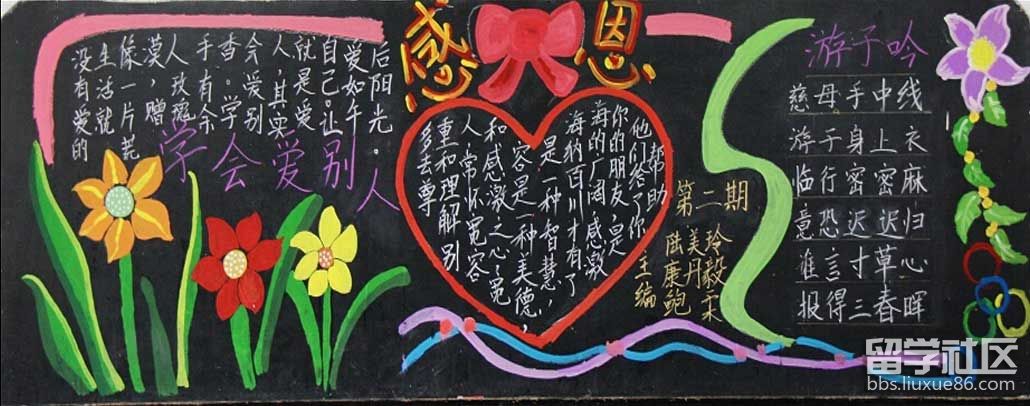 感恩
没有爱的
生活就
像一片荒
漠，赠
人玫瑰
手有余
香。学
会爱别
人，其实
就是爱
自己。让
爱如午
后阳光。
学会爱别人
多去尊
重和理解别
人，常怀宽容
和感激之心，宽
容是一种美德，
是一种智慧，
海纳百川才有了
海的广阔，感激
你的朋友，是
他们给了你
帮助
第二期
主编
陆美玲
康丹毅
鲍柔
游子吟
慈母手中线
游子身上衣
临行密密麻
意恐迟迟归
谁言寸草心
报得三春晖
留学社区
bbs.liuxue86.com